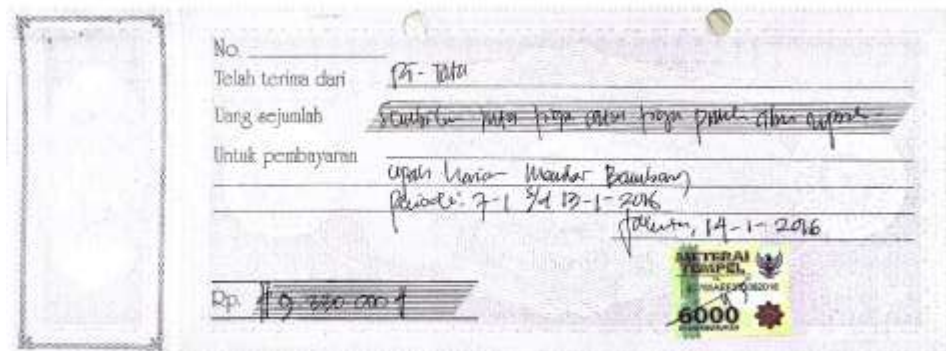 No.
Telah terima dari PT - Tata
Uang sejumlah Sembilan juta tiga ratus tiga puluh ribu rupiah -
Untuk pembayaran
upah harian Mandor Bambang
Periode : 7-1 s/d 13-1-2016
Jakarta, 14-1-2016
METERAI
TEMPEL
Rp. # 9.330.000 #
6000